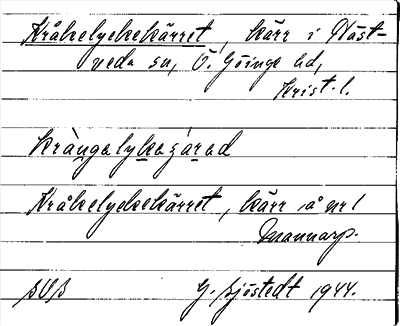 Kråkelyckekärret, kärr i Näst-
veda sn, Ö. Göinge hd,
Krist. l.
kràngalykagárad
Kråkelyckekärret, kärr å nr 1
Mannarp.
G. Sjöstedt 1944.